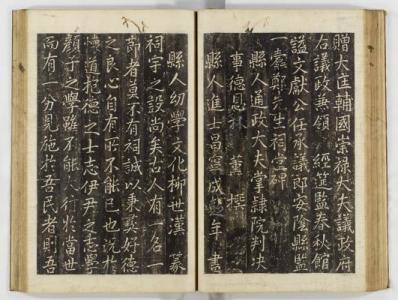 贈大匡輔國崇祿大夫議政府
右議政兼領　經筵監春秋館
諡文獻公任承議郎安陰縣監
一蠹鄭先生祠堂碑
縣人通政大夫掌隷院判决
事德恩林　薰　撰
縣人進士昌寧成彭年　書
縣人幼學文化柳世漢　篆
祠宇之設尚矣古人有一名一
節者莫不有祠誠以秉彛好德
之良心自有所不能已也况於
懷道抱德之士志伊尹之志學
顔子之學雖不能大行於當世
而有一分見施於吾民者則吾